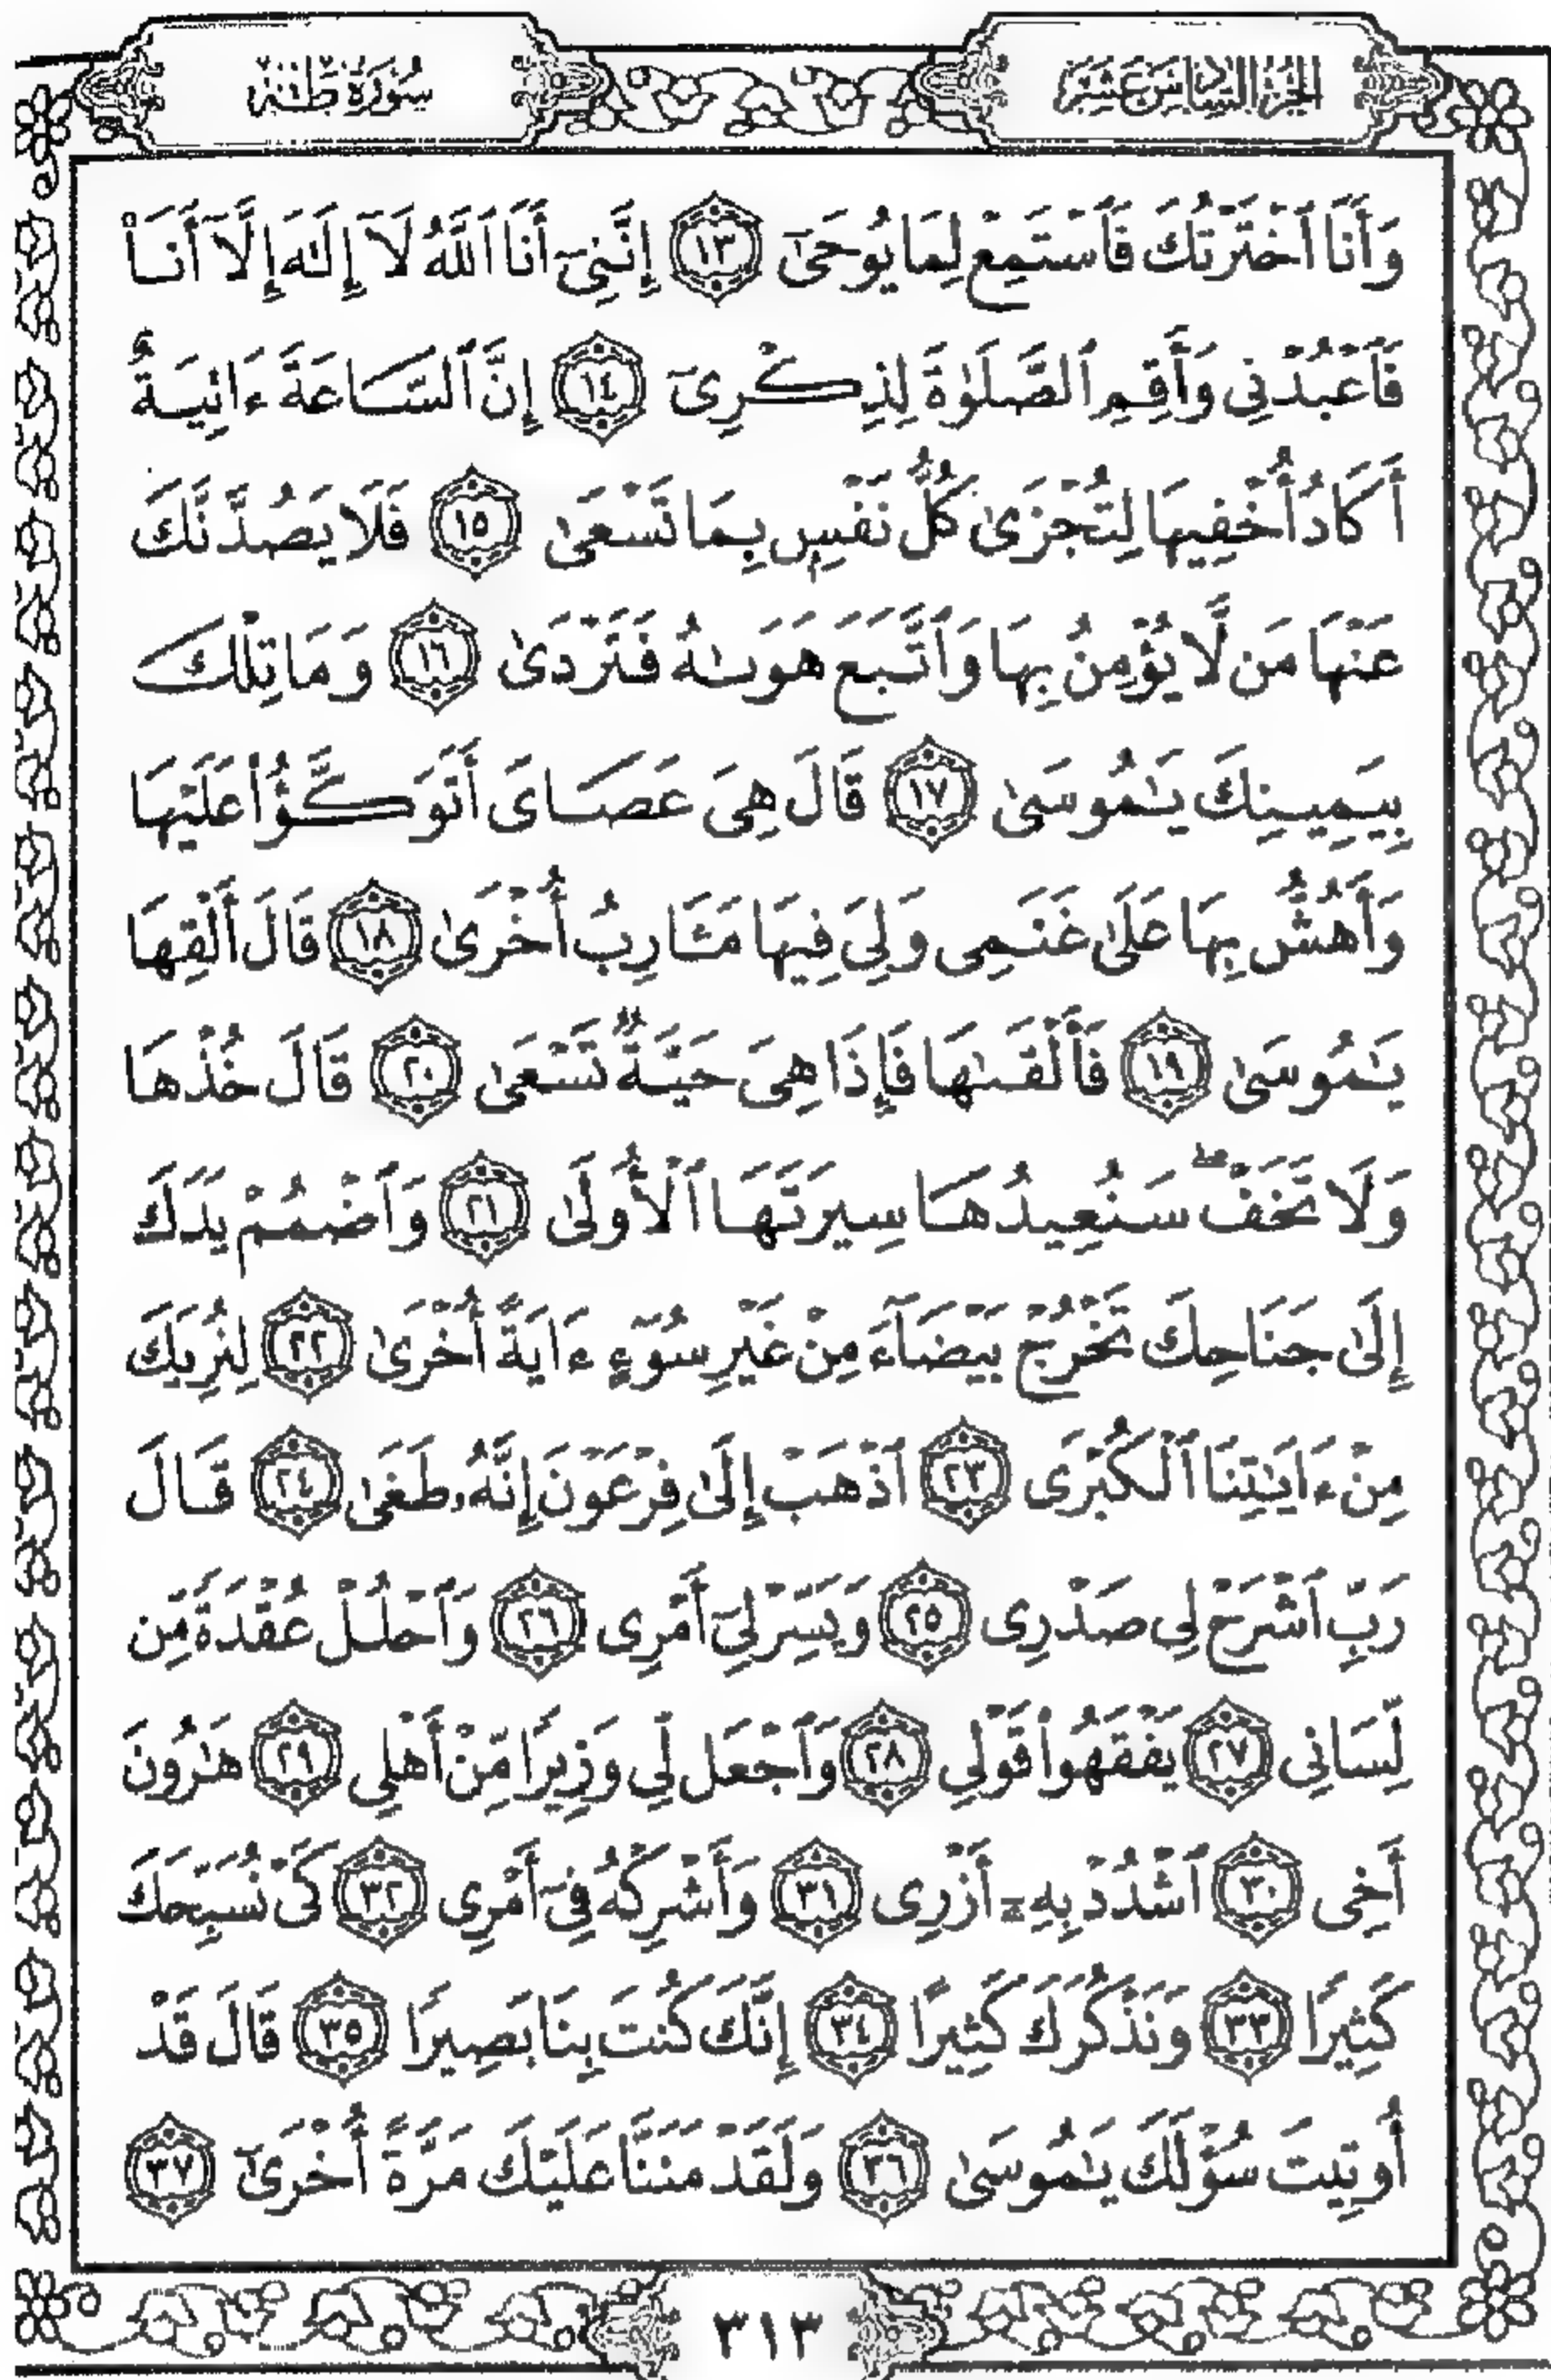 الجزء السادس عشر
سورة طه
وَأَنَا ٱخْتَرْتُكَ فَٱسْتَمِعْ لِمَا يُوحَىٰٓ ﴿١٣﴾ إِنَّنِىٓ أَنَا ٱللَّهُ لَآ إِلَٰهَ إِلَّآ أَنَا۠
فَٱعْبُدْنِى وَأَقِمِ ٱلصَّلَوٰةَ لِذِكْرِىٓ ﴿١٤﴾ إِنَّ ٱلسَّاعَةَ ءَاتِيَةٌ
أَكَادُ أُخْفِيهَا لِتُجْزَىٰ كُلُّ نَفْسٍۭ بِمَا تَسْعَىٰ ﴿١٥﴾ فَلَا يَصُدَّنَّكَ
عَنْهَا مَن لَّا يُؤْمِنُ بِهَا وَٱتَّبَعَ هَوَىٰهُ فَتَرْدَىٰ ﴿١٦﴾ وَمَا تِلْكَ
بِيَمِينِكَ يَٰمُوسَىٰ ﴿١٧﴾ قَالَ هِىَ عَصَاىَ أَتَوَكَّؤُا۟ عَلَيْهَا
وَأَهُشُّ بِهَا عَلَىٰ غَنَمِى وَلِىَ فِيهَا مَـَٔارِبُ أُخْرَىٰ ﴿١٨﴾ قَالَ أَلْقِهَا
يَٰمُوسَىٰ ﴿١٩﴾ فَأَلْقَىٰهَا فَإِذَا هِىَ حَيَّةٌ تَسْعَىٰ ﴿٢٠﴾ قَالَ خُذْهَا
وَلَا تَخَفْ ۖ سَنُعِيدُهَا سِيرَتَهَا ٱلْأُولَىٰ ﴿٢١﴾ وَٱضْمُمْ يَدَكَ
إِلَىٰ جَنَاحِكَ تَخْرُجْ بَيْضَآءَ مِنْ غَيْرِ سُوٓءٍ ءَايَةً أُخْرَىٰ ﴿٢٢﴾ لِنُرِيَكَ
مِنْ ءَايَٰتِنَا ٱلْكُبْرَى ﴿٢٣﴾ ٱذْهَبْ إِلَىٰ فِرْعَوْنَ إِنَّهُۥ طَغَىٰ ﴿٢٤﴾ قَالَ
رَبِّ ٱشْرَحْ لِى صَدْرِى ﴿٢٥﴾ وَيَسِّرْ لِىٓ أَمْرِى ﴿٢٦﴾ وَٱحْلُلْ عُقْدَةً مِّن
لِّسَانِى ﴿٢٧﴾ يَفْقَهُوا۟ قَوْلِى ﴿٢٨﴾ وَٱجْعَل لِّى وَزِيرًا مِّنْ أَهْلِى ﴿٢٩﴾ هَٰرُونَ
أَخِى ﴿٣٠﴾ ٱشْدُدْ بِهِۦٓ أَزْرِى ﴿٣١﴾ وَأَشْرِكْهُ فِىٓ أَمْرِى ﴿٣٢﴾ كَىْ نُسَبِّحَكَ
كَثِيرًا ﴿٣٣﴾ وَنَذْكُرَكَ كَثِيرًا ﴿٣٤﴾ إِنَّكَ كُنتَ بِنَا بَصِيرًا ﴿٣٥﴾ قَالَ قَدْ
أُوتِيتَ سُؤْلَكَ يَٰمُوسَىٰ ﴿٣٦﴾ وَلَقَدْ مَنَنَّا عَلَيْكَ مَرَّةً أُخْرَىٰٓ ﴿٣٧﴾
٣١٣